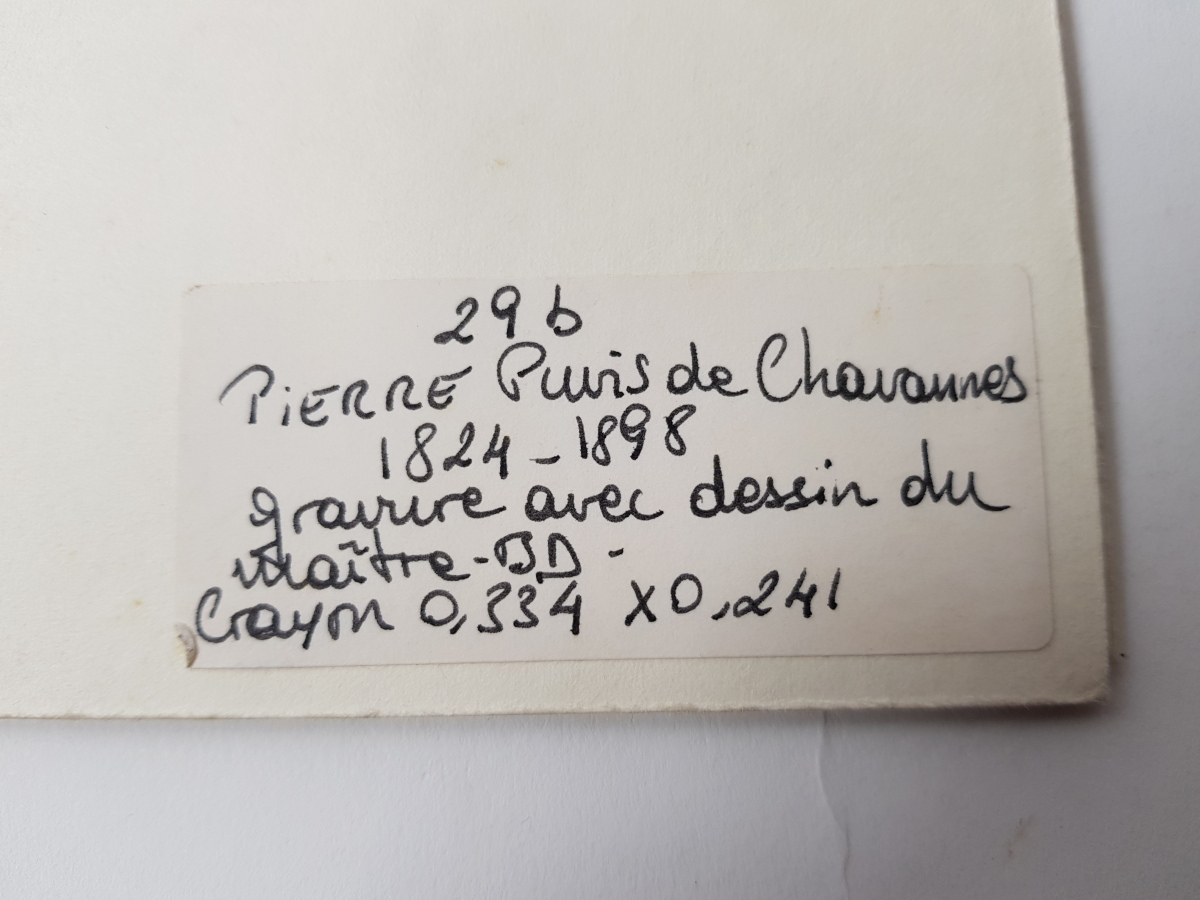 29 b
PiERRE Puvis de Chavannes
1824 - 1898
gravure avec dessin du
maître - BD -
Crayon 0,334 x 0,241